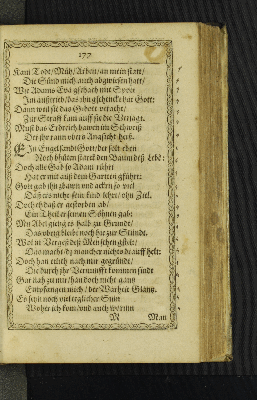 177
Kam Todt/Müh/Arbeit/an mein statt/
Die Sünd mich auch abgwiesen hatt/
Wie Adams Eva gschach mit Spott
Im austrieb/das ihn gschenckt hat Gott:
Dann weil sie das Gebott veracht/
Zur Straff kam auff sie die
Muß das Erdreich bawen im Schweiß
Der ihr rann übers Angsicht heiß.
Ein Engel sandt Gott/der solt ehen
Noch hüten starck den Baum deß Lebē:
Doch alle Gab so Adam führt
Hat er mit auß dem Garten gführt:
Gott gab ihn zhawn und acker so viel
Daß es nicht sein kind hett/ohn Ziel.
Doch eh daß er gestorben ab:
Ein Theil er seinen Söhnen gab:
My Abel gieng es halb zu Grunde/
Das uberg bleibt noch hie zur Stunde.
Wol in Vergeß deß Menschen gstelt:
Das macht dz mancher nichts drauff helt:
Doch han etlich nach mir gegründt/
Die durch ihr Vernunfft kommen sindt
Gar nah zu mir/han doch nicht gantz
Empfangen mich/der Warheit Glantz.
Es seyn noch viel täglicher Sinn
Woher ich kom/und auch
M Man